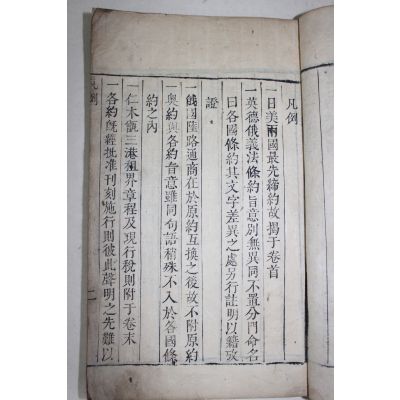 凡例
一日美兩國最先締約故揭于卷首
一英德俄義法條約旨意別無異同不置分門命名
曰各國條約其文字差異之處另行註明以籍攷
證
國陸路通商在於原約互換之後故不附原約
一奧約與各約旨意雖同句語稍殊不入於各國條
約之內
一仁木甑三港租界章程及現行稅則附于卷末
一各約旣經批准刊刻施行則彼此聲明之先難以
凡例